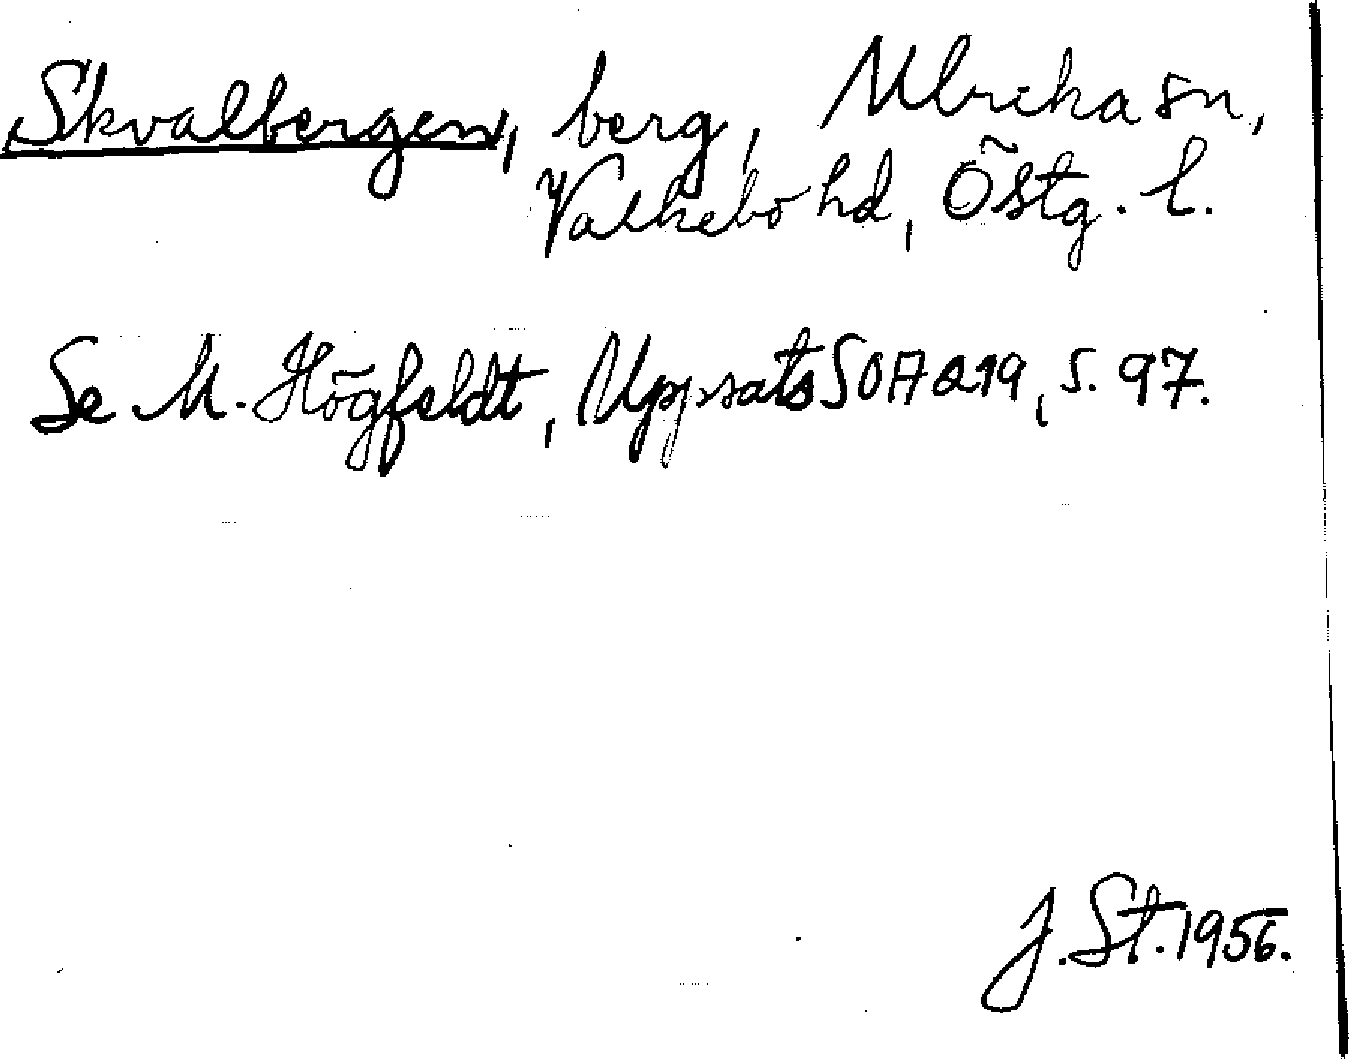 Skvalbergen, berg, Ulrika sn,
Valkebo hd, Östg. l.
Se M. Högfeldt, Uppsats SOFA 219, s. 97.
J. St. 1956.